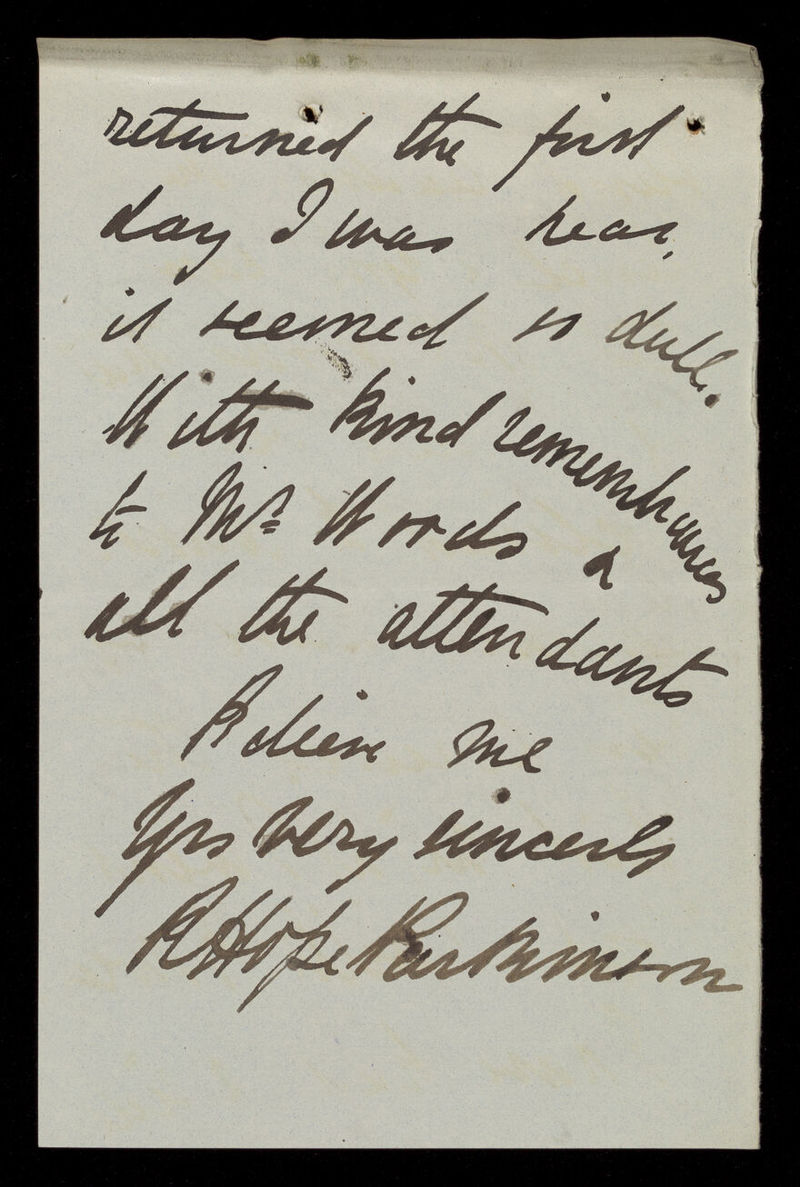 returned the first
day I was hear,
it seemed so dull.
With kind remembrances
to Mr Woods &
all the attendants
Believe me
Yrs very sincerely
R Hope Parkinson